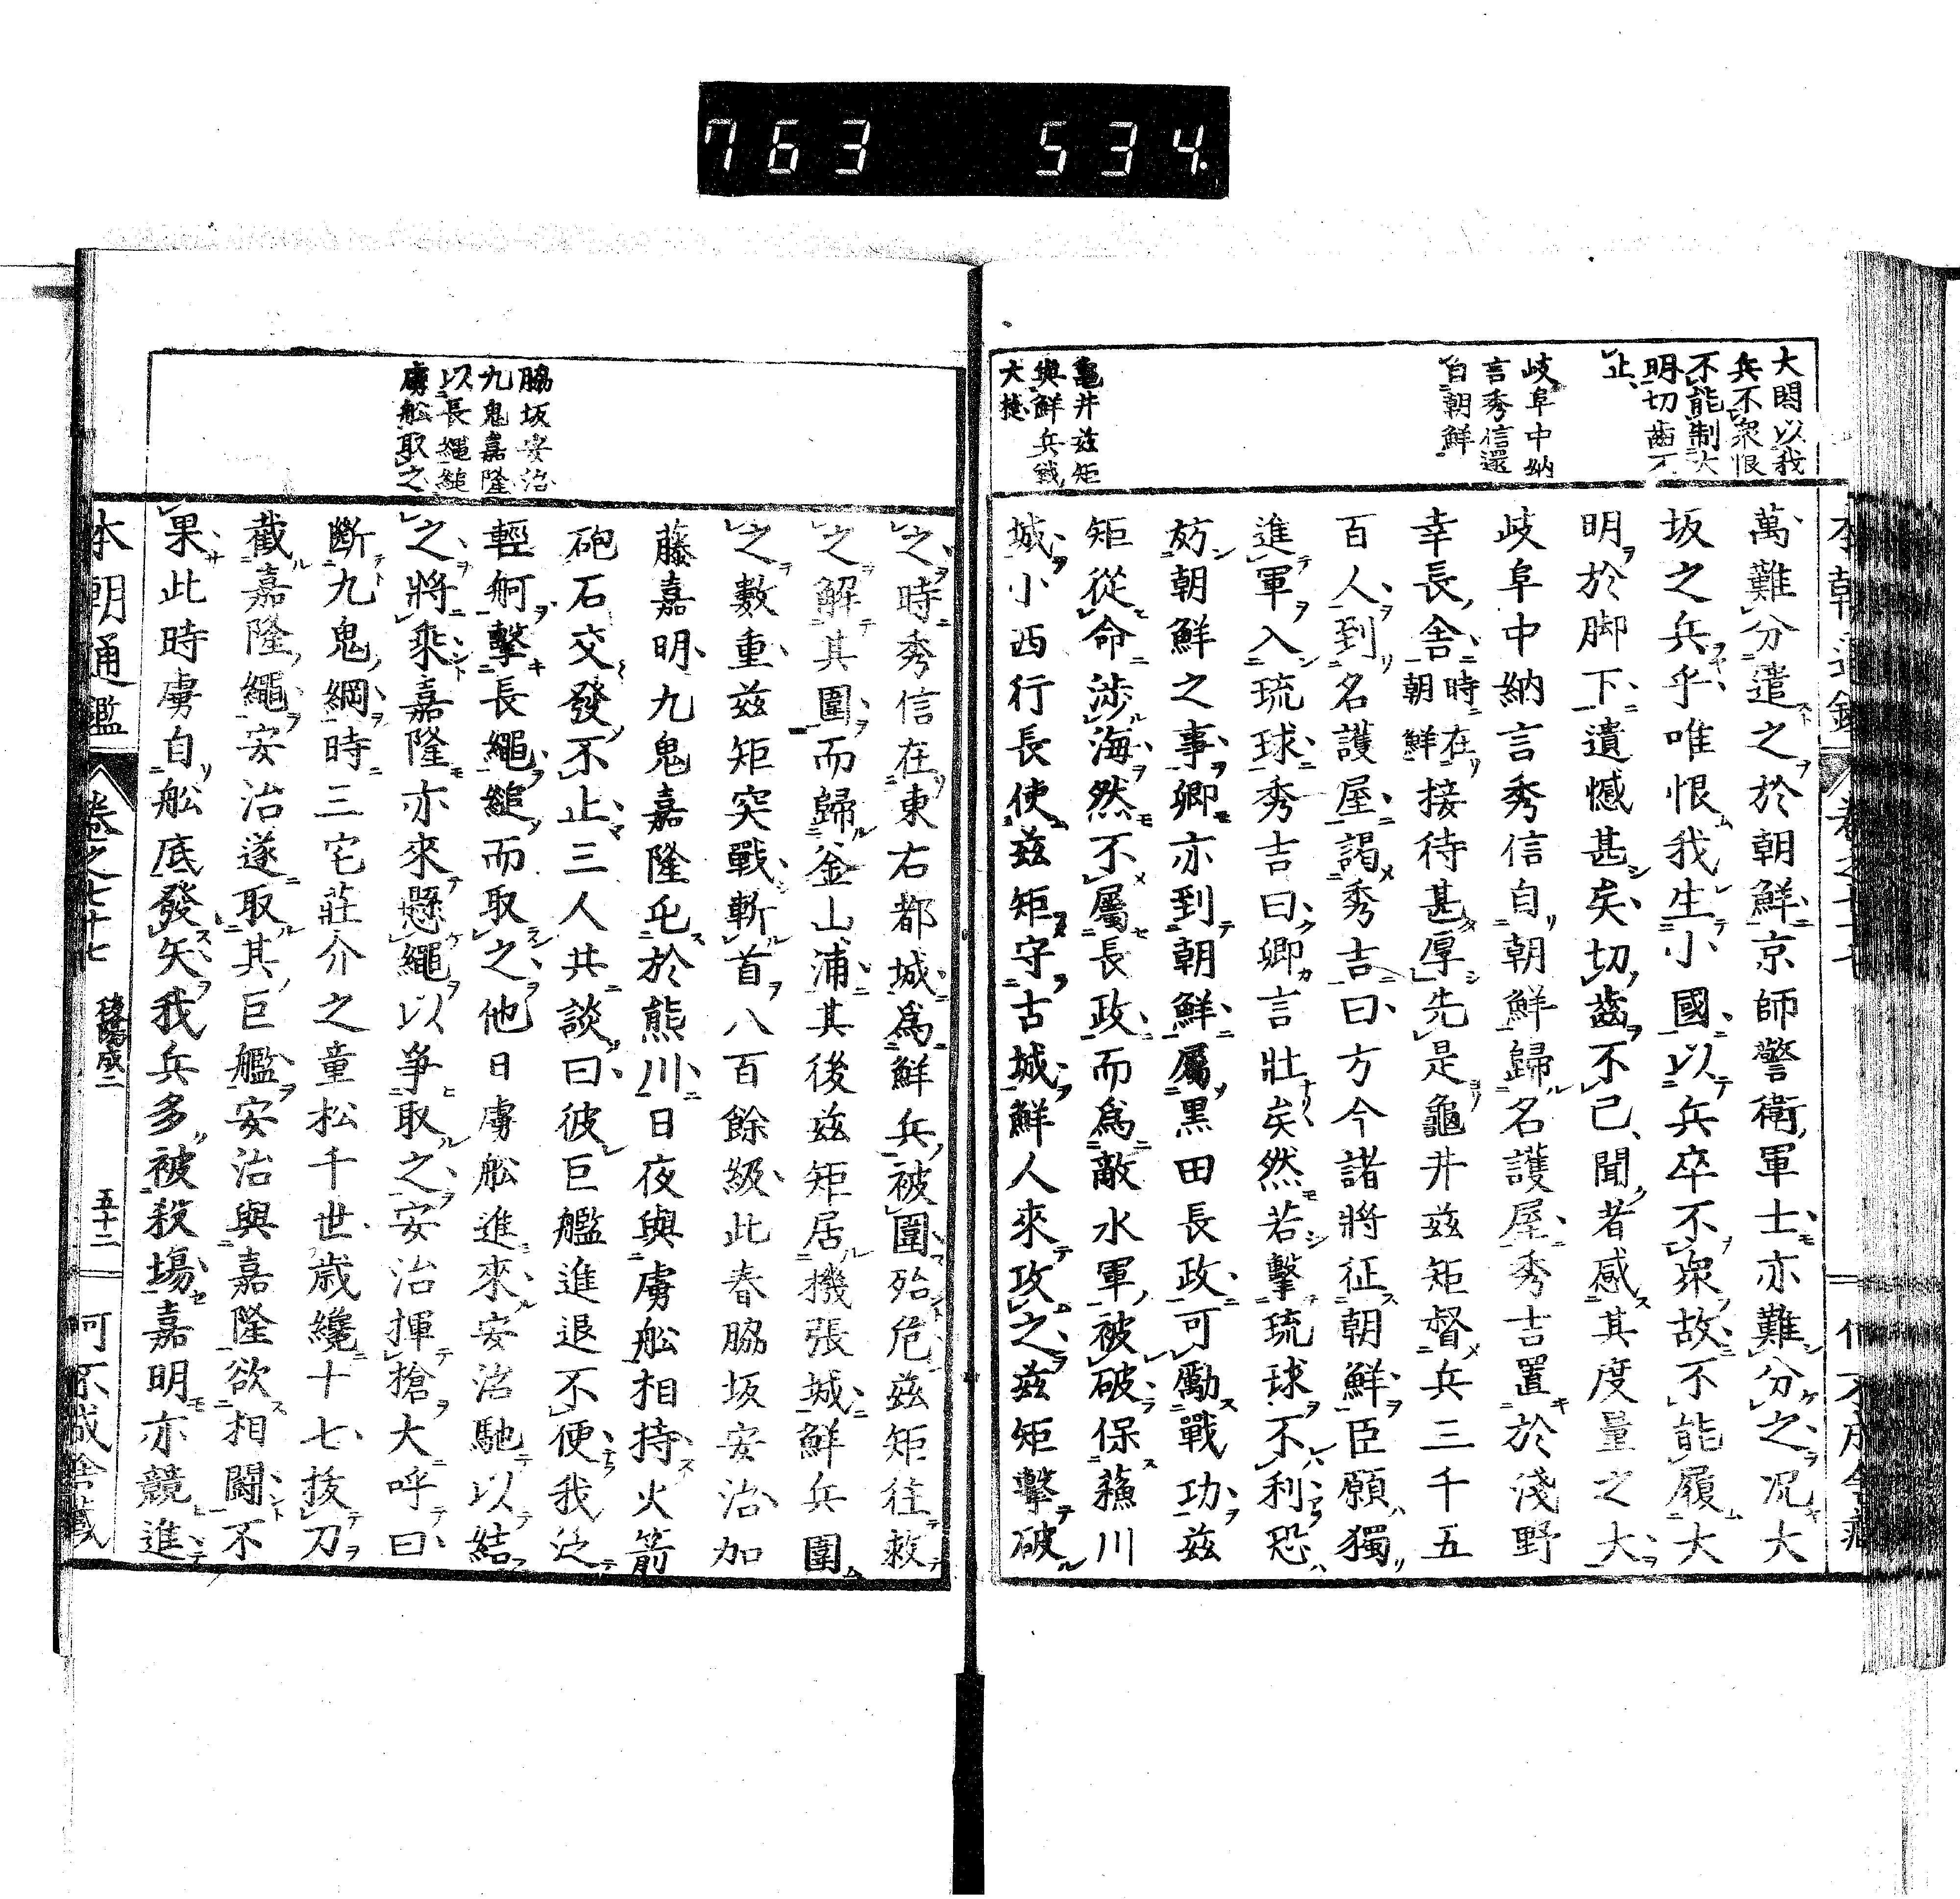 763 534
大閤以我
兵不衆恨
不能制大
明切齒不
止
岐阜中納
言秀信還
自朝鮮
龜井茲矩
與鮮兵戰
大捷
萬難分遣之於朝鮮京師警衛軍士亦難分之况大
坂之兵乎唯恨我生小國以兵卒不衆故不能履大
明於脚下遺憾甚矣切齒不已聞者感其度量之大
岐阜中納言秀信自朝鮮歸名護屋秀吉置於淺野
幸長舍時在朝鮮接待甚厚先是龜井茲矩督兵三千五
百人到名護屋謁秀吉曰方今諸將征朝鮮臣願獨
進軍入琉球秀吉曰卿言壯矣然若擊琉球不利恐
妨朝鮮之事卿亦到朝鮮屬黒田長政可勵戰功茲
矩從命渉海然不屬長政而為敵水軍被破保蘓川
城小西行長使茲矩守古城鮮人來攻之茲矩擊破
脇坂安治
九鬼嘉隆
以長繩縋
虜舩取之
之時秀信在東右都城為鮮兵被圍殆危茲矩往救
之解其圍而歸金山浦其後茲矩居機張城鮮兵圍
之數重茲矩突戰斬首八百餘級此春脇坂安治加
藤嘉明九鬼嘉隆屯於熊川日夜與虜舩相持火箭
砲石交發不止三人共談曰彼巨艦進退不便我泛
輕舸擊長繩縋而取之他日虜舩進來安治馳以結
之將乘嘉隆亦來懸繩以爭取之安治揮槍大呼曰
斷九鬼綱時三宅莊介之童松千世歳纔十七抜刀
截嘉隆繩安治遂取其巨艦安治與嘉隆欲相鬪不
果此時虜自舩底發矢我兵多被殺塲嘉明亦競進
本朝通鑑 卷之七十七 後陽成二 五十二